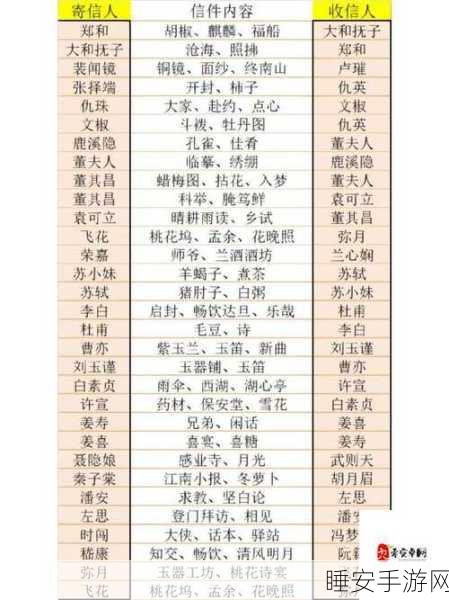 寄信人 信件内容 收信人
郑和 胡椒、麒麟、福船 大和抚子
大和抚子 沧海、照拂 郑和
裴闻镜 铜镜、面纱、终南山 卢璀
张择端 开封、柿子 仇英
仇珠 大家、赴约、点心 文椒
文椒 斗拨、牡丹图 仇英
鹿溪隐 孔雀、佳肴 董夫人
董夫人 临摹、绣绷 鹿溪隐
董其昌 蜡梅图、拈花、入梦 董夫人
董其昌 科举、腌笃鲜 袁可立
袁可立 晴耕雨读、乡试 董其昌
飞花 桃花坞、孟余、花晚照 弥月
荣嘉 师爷、兰酒酒坊 兰心娴
苏小妹 羊蝎子、煮茶 苏轼
苏轼 猪肘子、白粥 苏小妹
李白 启封、畅饮达旦、乐哉 杜甫
杜甫 毛豆、诗 李白
曹亦 紫玉兰、玉笛、新曲 刘玉谨
刘玉谨 玉器铺、玉笛 曹亦
白素贞 雨伞、西湖、湖心亭 许宣
许宣 药材、保安堂、雪花 白素贞
姜寿 兄弟、闲话 姜喜
姜喜 喜宴、喜糖 姜寿
聂隐娘 感业寺、月光 武则天
秦子棠 江南小报、冬萝卜 胡月眉
潘安 求教、坚白论 左思
左思 登门拜访、相见 潘
时闯 大侠、话本、驿站 冯梦
嵇康 知交、畅饮、清风明月 阮
弥月 玉器工坊、桃花诗宴
飞花 桃花坞、桃花
睡安手游网